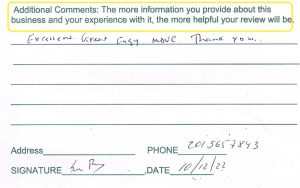 Additional Comments: The more information you provide about this
business and your experience with it, the more helpful your review will be.
Excellent. Great Easy MOVE Thank you.
Address PHONE 2015657843
SIGNATURE ,DATE 10/12/22